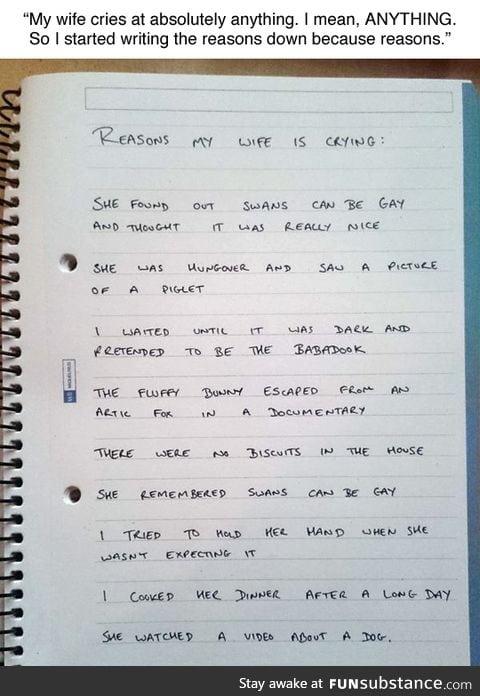 “My wife cries at absolutely anything. I mean, ANYTHING.
So I started writing the reasons down because reasons.”
REASONS MY WIFE IS CRYING:
SHE FOUND OUT SWANS CAN BE GAY
AND THOUGHT IT WAS REALLY NICE
SHE WAS HUNGOVER AND SAW A PICTURE
OF A PIGLET
I WAITED UNTIL IT WAS DARK AND
PRETENDED TO BE THE BABADOOK
THE FLUFFY BUNNY ESCAPED FROM AN
ARTIC FOX IN A DOCUMENTARY
THERE WERE NO BISCUITS IN THE HOUSE
SHE REMEMBERED SWANS CAN BE GAY
I TRIED TO HOLD HER HAND WHEN SHE
WASNT EXPECTING IT
I COOKED HER DINNER AFTER A LONG DAY
SHE WATCHED A VIDEO ABOUT A DOG.
Stay awake at FUNsubstance.com